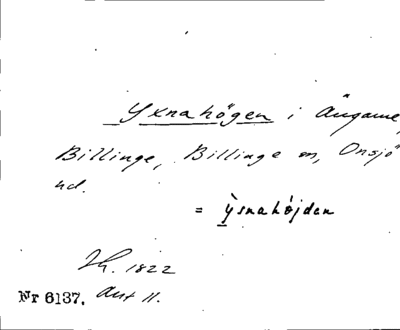 Yxnahögen i Ängarne,
Billinge, Billinge sn, Onsjö
hd.
= ỳsnahöjdan
Lh. 1822
Nr 6137. Ant 11.